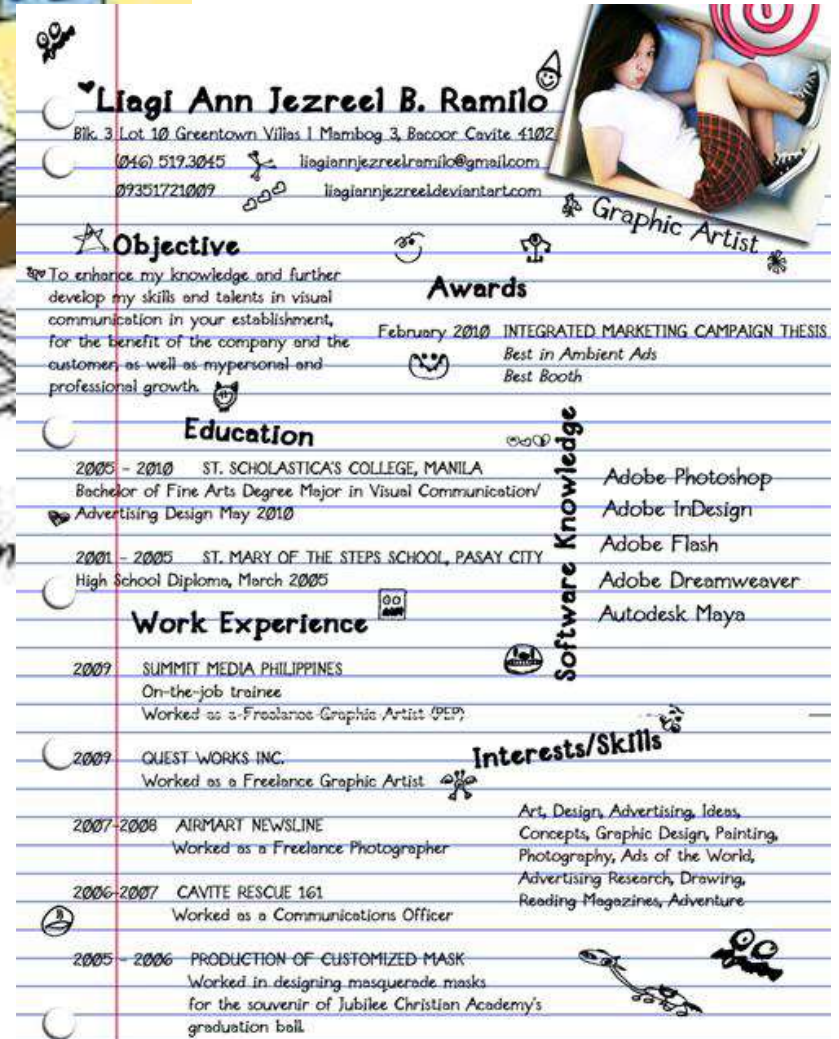 Liagi Ann Jezreel B. Ramilo
Blk. 3 Lot 10 Greentown Villas 1 Mambog 3, Bacoor Cavite 4102
(046) 519.3045 liagiannjezreel.ramilo@gmail.com
09351721009 liagiannjezreel.deviantart.com
Graphic Artist
Objective
To enhance my knowledge and further
develop my skills and talents in visual
communication in your establishment,
for the benefit of the company and the
customer, as well as mypersonal and
professional growth.
Awards
February 2010 INTEGRATED MARKETING CAMPAIGN THESIS
Best in Ambient Ads
Best Booth
Education
2005 - 2010 ST. SCHOLASTICA'S COLLEGE, MANILA
Bachelor of Fine Arts Degree Major in Visual Communication/
Advertising Design May 2010
2001 - 2005 ST. MARY OF THE STEPS SCHOOL, PASAY CITY
High School Diploma, March 2005
Software Knowledge
Adobe Photoshop
Adobe InDesign
Adobe Flash
Adobe Dreamweaver
Autodesk Maya
Work Experience
2009 SUMMIT MEDIA PHILIPPINES
On-the-job trainee
Worked as a Freelance Graphic Artist (PEP)
2009 QUEST WORKS INC.
Worked as a Freelance Graphic Artist
2007-2008 AIRMART NEWSLINE
Worked as a Freelance Photographer
2006-2007 CAVITE RESCUE 161
Worked as a Communications Officer
2005 - 2006 PRODUCTION OF CUSTOMIZED MASK
Worked in designing masquerade masks
for the souvenir of Jubilee Christian Academy's
graduation ball.
Interests/Skills
Art, Design, Advertising, Ideas,
Concepts, Graphic Design, Painting,
Photography, Ads of the World,
Advertising Research, Drawing,
Reading Magazines, Adventure